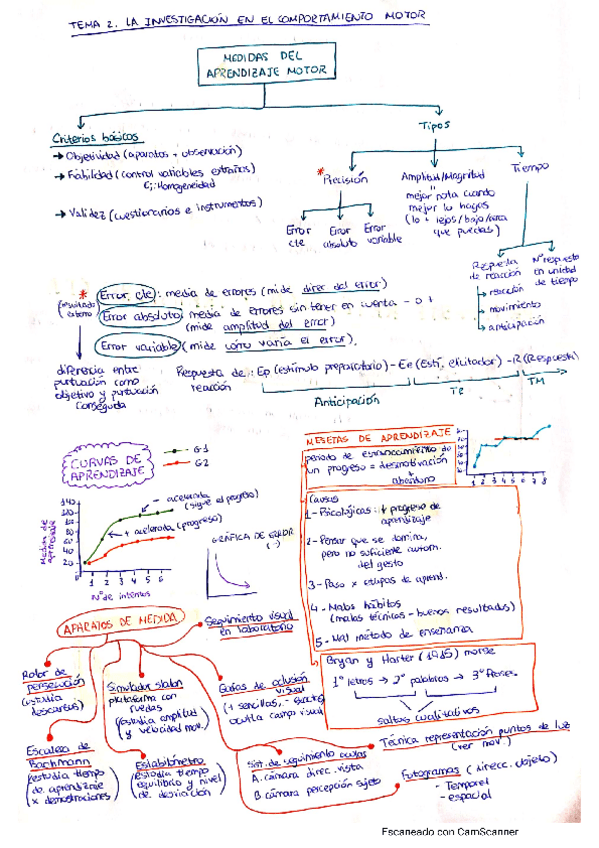 TEMA 2. LA INVESTIGACIÓN EN EL COMPORTAMIENTO MOTOR
MEDIDAS DEL
APRENDIZAJE MOTOR
Criterios básicos
→ Objetividad (aparatos + observación)
→ Fiabilidad (control variables extrañas)
Ej: Homogeneidad
→ Validez (cuestionarios e instrumentos)
Tipos
* Precisión
Error
cte
Error
absoluto
Error
variable
Amplitud/Magnitud
mejor nota cuando
mejor lo hagas
(lo + lejos/bajo/
que puedas)
Tiempo
Respuesta
de reacción
→ reacción
→ movimiento
→ anticipación
Nº respuesta
en unidad
de tiempo
* Error cte: media de errores (mide direc del error)
Error absoluto: media de errores sin tener en cuenta - o +
(mide amplitud del error)
Error variable (mide cómo varía el error).
diferencia entre
puntuación como
objetivo y puntuación
conseguida
Respuesta de : Ep (estímulo preparatorio) - Ee (Estí. elicitador) - R (Respuesta)
reacción
Anticipación
TR
TM
CURVAS DE
APRENDIZAJE
G1
G2
- acelerada
(sigue el progreso)
+ acelerada (progreso)
Medida de
aprendizaje
140
120
100
80
60
40
20
1 2 3 4 5 6
Nº de intentos
GRÁFICA DE ERROR
(-)
MESETAS DE APRENDIZAJE
período de estancamiento de
un progreso = desmotivación
+
abandono
1 2 3 4 5 6 7 8
Causas
1- Psicológicas: progreso de
aprendizaje
2- Pensar que se domina,
pero no suficiente autom.
del gesto
3- Paso x etapas de aprend.
4- Malos hábitos
(malas técnicas - buenos resultados)
5- Mal método de enseñanza
Bryan y Harter morse
1º letras → 2º palabras → 3º frases
saltos cualitativos
APARATOS DE MEDIDA
Seguimiento visual
en laboratorio
Rotor de
persecución
(estudia
descartes)
Simulador slalon
plataforma con
ruedas
(estudia amplitud
y velocidad mov.)
Gafas de oclusión
visual
(+ sencillas, - exactas)
oculta campo visual
Escalera de
Bachmann
(estudia tiempo
de aprendizaje
x demostraciones)
Estabilómetro
(estudia tiempo
equilibrio y nivel
de desviación)
Sist. de seguimiento ocular
A. cámara direc. vista
B cámara percepción sujeto
Técnica representación puntos de luz
(ver mov.)
Fotogramas (direcc. objeto)
- Temporal
- espacial
Escaneado con CamScanner